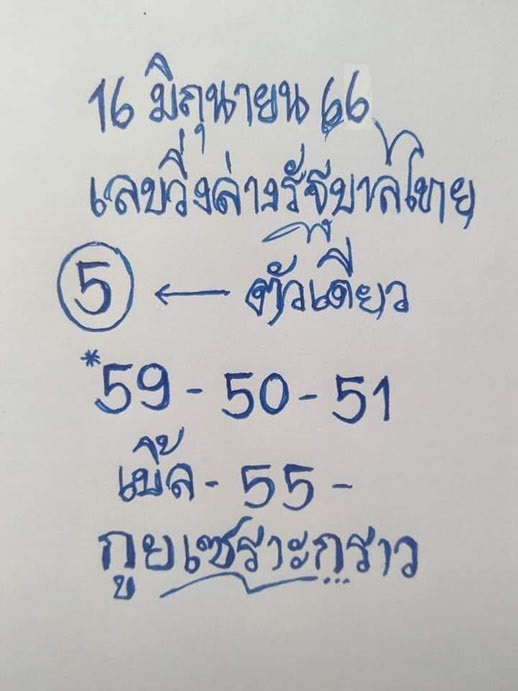 16 มิถุนายน 66
เลขวิ่งล่างรัฐบาลไทย
5 ← ตัวเดียว
*59 - 50 - 51
เบิ้ล - 55 -
กูยเซราะกราว